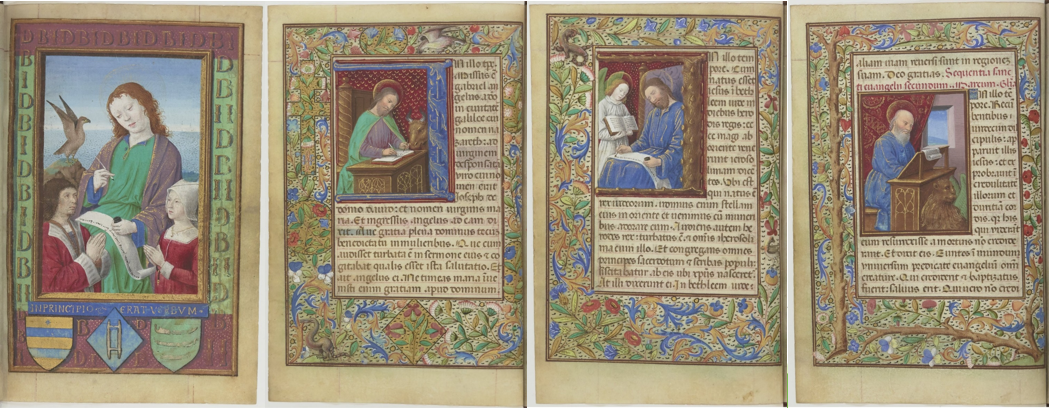 DBIDBIDBIDBIDBI
INPRINCIPIO ERAT VERBVM
In illo tpr
gabriel an
gelus. a do
in ciuitate
galilee cui
nomen na
zareth. ad
uirginem
desponsata
uiro cui no
men erat
Joseph de
domo dauid. et nomen uirginis ma
ria. Et ingressus angelus ad eam di
xit. aue gratia plena dominus tecu
benedicta tu in mulieribus. Que cum
audisset turbata e in sermone eius et co
gitabat qualis esset ista salutatio. Et
ait angelus ei. Ne timeas maria inue
nisti enim gratiam apud dominum.
In illo tem
pore. Cum
natus esset
iesus in
bethleem iude in
diebus hero
dis regis: ecce
magi ab
oriente vene
runt iheroso
limam dicen
tes. Ubi est
qui natus est
rex iudeorum. uidimus enim stellam
eius in oriente et uenimus cum munen
bus adorare eum. Audiens autem he
rodes rex: turbatus e. et omnis iherosoli
ma cum illo. Et congregans omnes
principes sacerdotum et scribas populi:
sciscitabatur ab eis ubi xpus nasceret.
At illi dixerunt ei. In bethleem iude:
aliam uiam reuersi sunt in regionem
suam. Deo gratias. Sequentia sanc
ti euangelii secundum Marcum. Glia
In illo te
pore. Recu
bentibus
undecim di
scipulis: ap
paruit illis
iesus: et ex
probrauit i
credulitate
illorum et
duritiam cor
dis. qz his
qui uiderant
eum resurrexisse a mortuis no credide
runt. Et dixit eis. Euntes in mundum
vniuersum predicate euangelium omni
creature. Qui crediderit et baptizatus
fuerit: saluus erit. Qui uero no credi